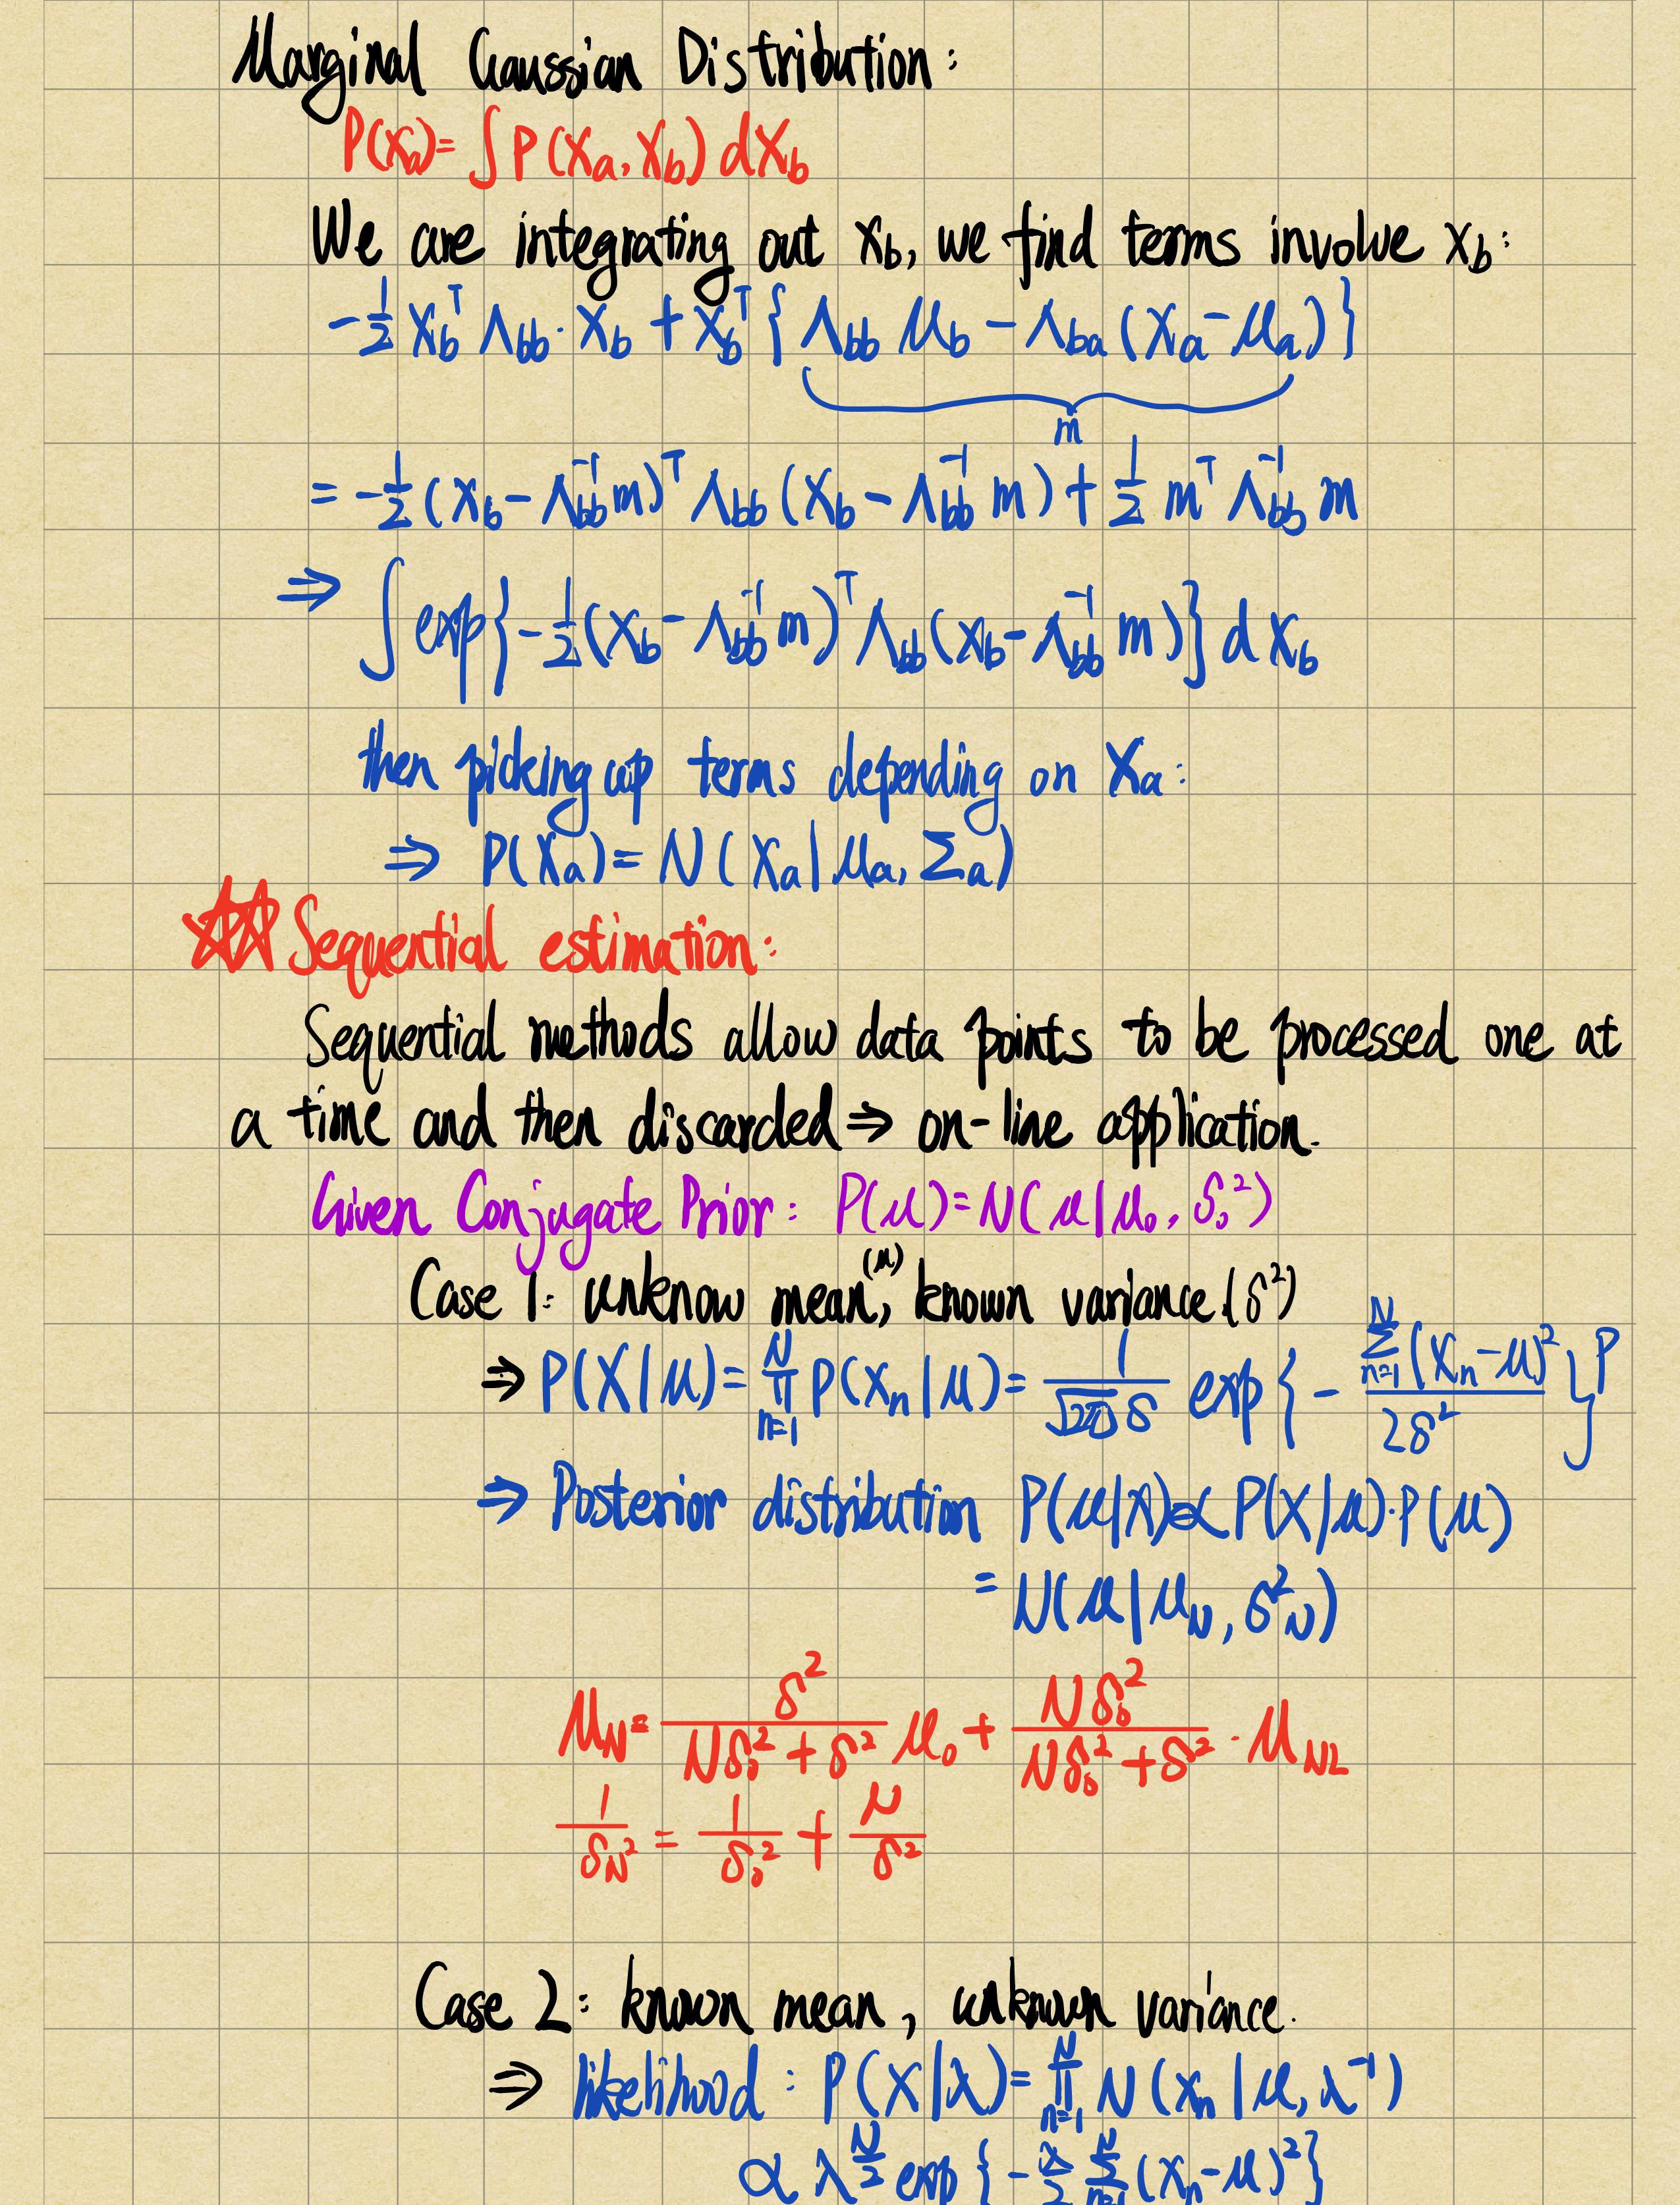 Marginal Gaussian Distribution:
P(Xa)= ∫ P(Xa, Xb) dXb
We are integrating out Xb, we find terms involve Xb:
-1/2 Xb^T Λbb · Xb + Xb^T { Λbb μb - Λba (Xa - μa) }
m
= -1/2 (Xb - Λbb^-1 m)^T Λbb (Xb - Λbb^-1 m) + 1/2 m^T Λbb^-1 m
⇒ ∫ exp{ -1/2 (Xb - Λbb^-1 m)^T Λbb (Xb - Λbb^-1 m) } d Xb
then picking up terms depending on Xa:
⇒ P(Xa) = N( Xa | μa, Σa )
☆☆ Sequential estimation:
Sequential methods allow data points to be processed one at
a time and then discarded ⇒ on-line application.
Given Conjugate Prior: P(μ)=N( μ | μ0, δ0^2 )
Case 1: unknow mean,(μ) known variance.(δ^2)
⇒ P(X|μ) = ∏_{n=1}^{N} P(xn|μ) = 1/(√(2π) δ) exp{ - Σ_{n=1}^{N} (xn-μ)^2 / 2δ^2 } P
⇒ Posterior distribution P(μ|X) ∝ P(X|μ)·P(μ)
= N(μ | μN, δ^2N)
μN = δ^2/(Nδ0^2 + δ^2) μ0 + Nδ0^2/(Nδ0^2 + δ^2) · μNL
1/δN^2 = 1/δ0^2 + N/δ^2
Case 2: known mean, unknown variance.
⇒ likelihood: P(X|λ) = ∏_{n=1}^{N} N(xn | μ, λ^-1)
∝ λ^{N/2} exp { -λ/2 Σ_{n=1}^{N} (xn-μ)^2 }